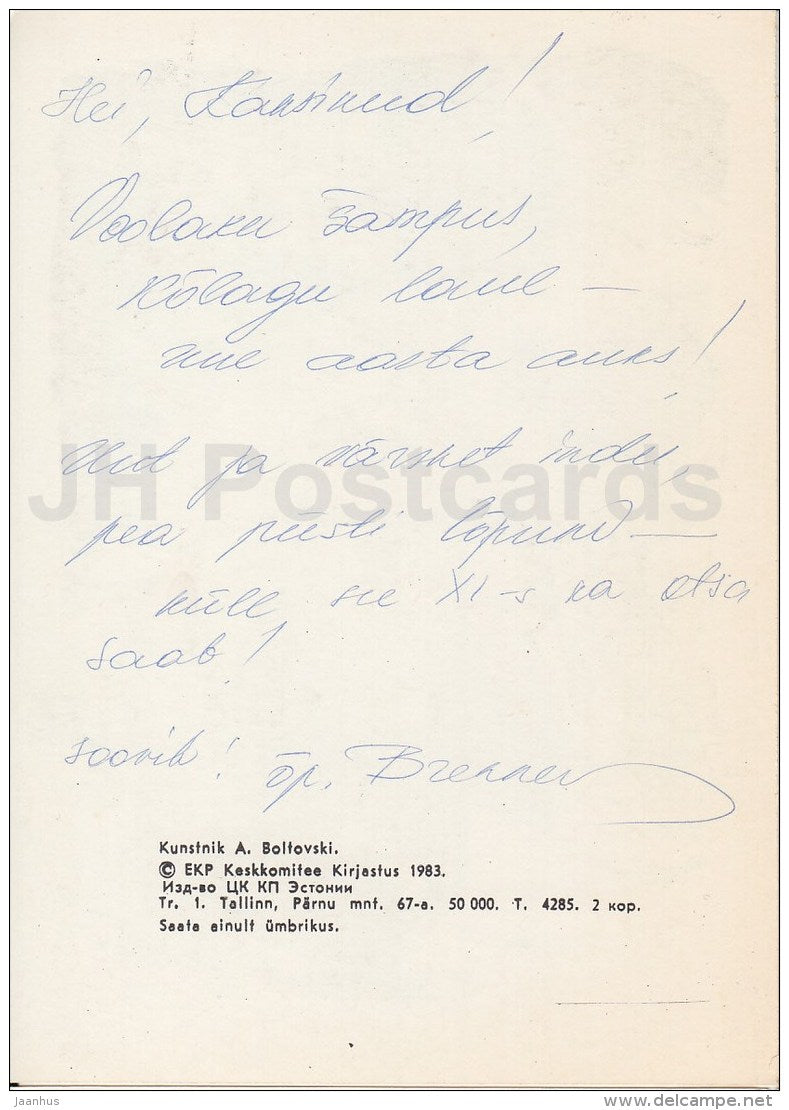 Hei, Kaksikud!
Voolaku šampus,
kõlagu laul —
uue aasta auks!
Uut ja värsket indu,
pea püsti lõpuni —
küll see XI-s ka otsa
saab!
soovib! õp. Brenner
JH Postcards
Kunstnik A. Boltovski.
© EKP Keskkomitee Kirjastus 1983.
Изд-во ЦК КП Эстонии
Tr. 1. Tallinn, Pärnu mnt. 67-a. 50 000. T. 4285. 2 кор.
Saata ainult ümbrikus.
Jaanhus
www.delcampe.net